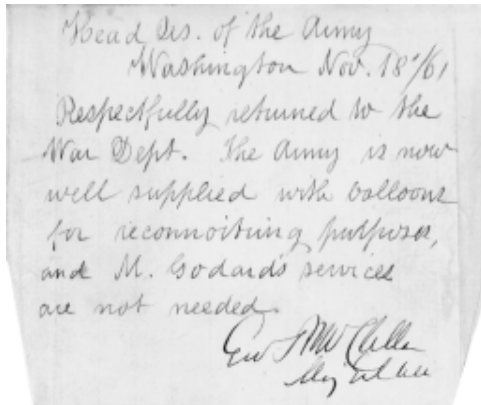 Head Qrs. of the Army
Washington Nov. 18"/61
Respectfully returned to the
War Dept. The Army is now
well supplied with balloons
for reconnoitring purposes,
and M. Godard's services
are not needed.
Geo B McClellan
Maj Genl